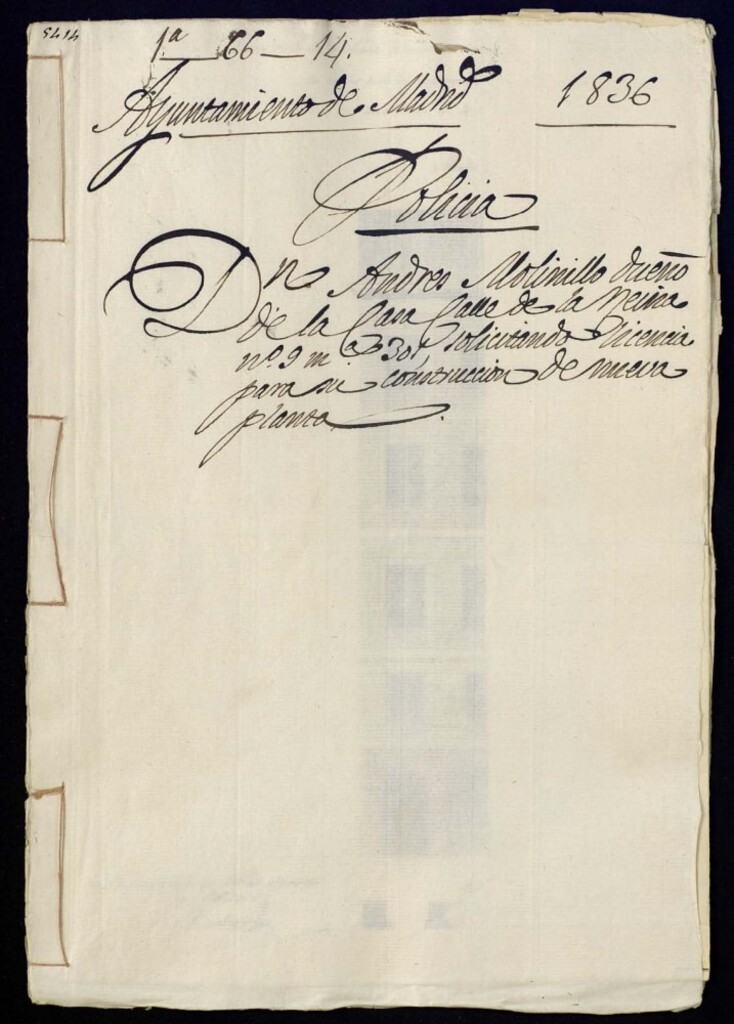 1ª — 66 — 14.
Ayuntamiento de Madrid 1836
Policia
Dn Andres Molinillo dueño
de la Casa Calle de la Reina
nº 9 mª 301 solicitando licencia
para su construccion de nueva
planta